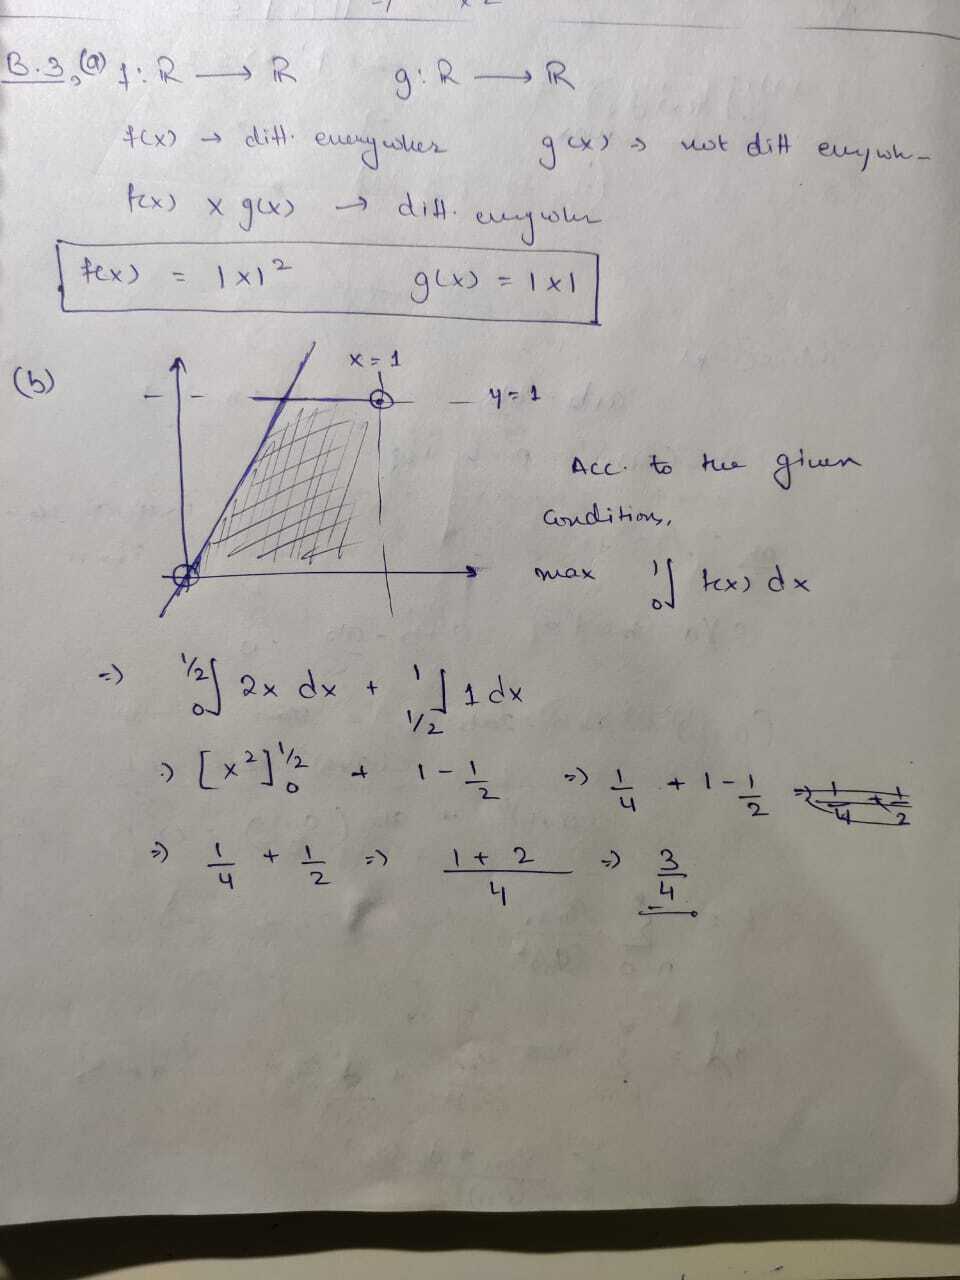 B.3, (a) f : R → R g : R → R
f(x) → diff. everywher g(x) → not diff everywh-
f(x) x g(x) → diff. everywher
f(x) = |x|² g(x) = |x|
(b)
x = 1
y = 1
Acc. to the given
conditions,
max ₀∫¹ f(x) dx
=> ₀∫^1/2 2x dx + 1/2∫¹ 1 dx
=> [x²]₀^1/2 + 1 - 1/2 => 1/4 + 1 - 1/2
=> 1/4 + 1/2 => (1 + 2)/4 => 3/4